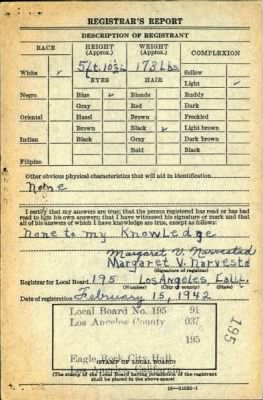 REGISTRAR'S REPORT
DESCRIPTION OF REGISTRANT
RACE HEIGHT (Approx.) WEIGHT (Approx.) COMPLEXION
5ft. 10½ in 173 Lbs. Sallow
White ✓ EYES HAIR Light ✓
Negro Blue ✓ Blonde Ruddy
Gray Red Dark
Oriental Hazel Brown Freckled
Brown Black ✓ Light brown
Indian Black Gray Dark brown
Bald Black
Filipino
Other obvious physical characteristics that will aid in identification
None
I certify that my answers are true; that the person registered has read or has had
read to him his own answers; that I have witnessed his signature or mark and that
all of his answers of which I have knowledge are true, except as follows:
None to my Knowledge
Margaret V. Narvested
Margaret V. Narvested
(Signature of registrar)
Registrar for Local Board 195 Los Angeles Calif.
(Number) (City or county) (State)
Date of registration February 15, 1942
Local Board No. 195 91
Los Angeles County 037
195
195
Eagle Rock City Hall
(STAMP OF LOCAL BOARD)
Los Angeles, California
(The stamp of the Local Board having jurisdiction of the registrant
shall be placed in the above space)